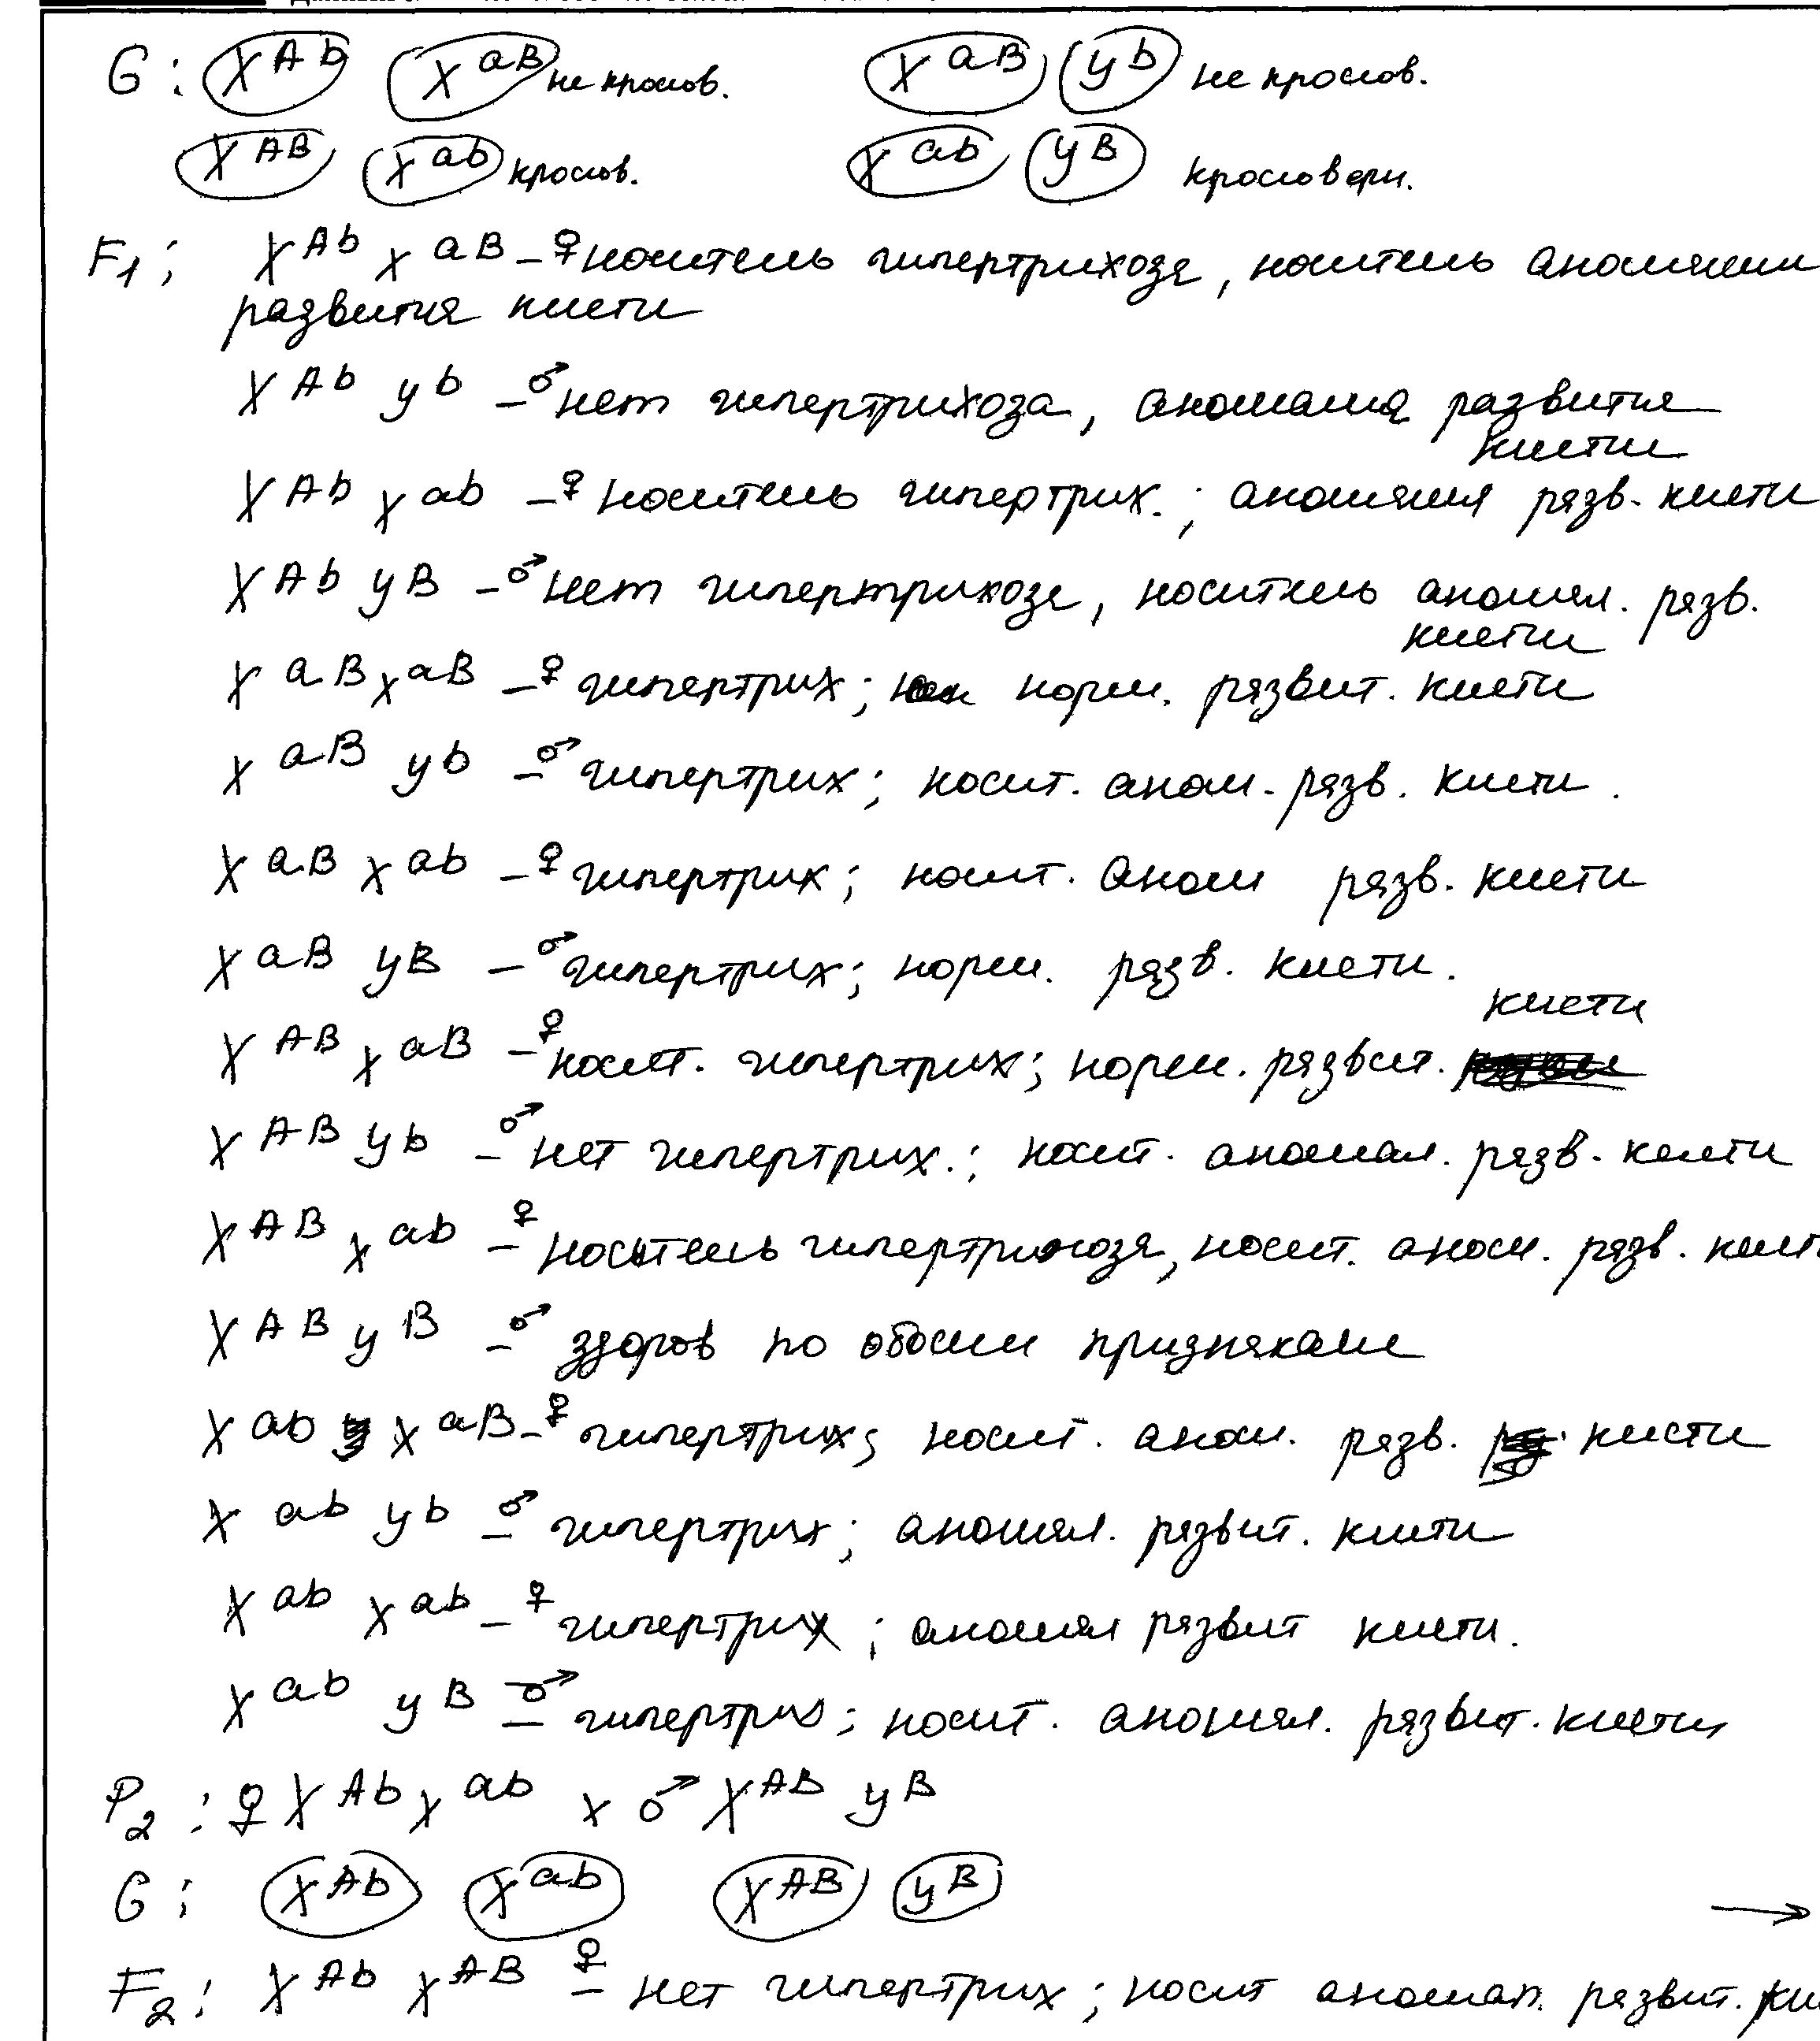 G: X^Ab X^aB не кросов. X^aB y^b не кроссов.
X^AB X^ab кроссов. X^ab y^B кроссоверн.
F1: X^Ab X^aB – ♀ носитель гипертрихоза, носитель аномалии
развития кисти
X^Ab y^b – ♂ нет гипертрихоза, аномалия развития
кисти
X^Ab X^ab – ♀ носитель гипертрих.; аномалия разв. кисти
X^Ab y^B – ♂ нет гипертрихоза, носитель аномал. разв.
кисти
X^aB X^aB – ♀ гипертрих; норм. развит. кисти
X^aB y^b – ♂ гипертрих; носит. аном. разв. кисти.
X^aB X^ab – ♀ гипертрих; носит. аном разв. кисти
X^aB y^B – ♂ гипертрих; норм. разв. кисти.
кисти
X^AB X^aB – ♀ носит. гипертрих; норм. развит.
X^AB y^b – ♂ нет гипертрих.; носит. аномал. разв. кисти
X^AB X^ab – ♀ носитель гипертрихоза, носит. аном. разв. кист
X^AB y^B – ♂ здоров по обоим признакам
X^ab X^aB – ♀ гипертрих; носит. аном. разв. кисти
X^ab y^b – ♂ гипертрих; аномал. развит. кисти
X^ab X^ab – ♀ гипертрих; аномал развит кисти.
X^ab y^B – ♂ гипертрих; носит. аномал. развит. кисти
P2: ♀ X^Ab X^ab x ♂ X^AB y^B
G: X^Ab X^ab X^AB y^B →
F2: X^Ab X^AB ♀ – нет гипертрих; носит аномал. развит. ки